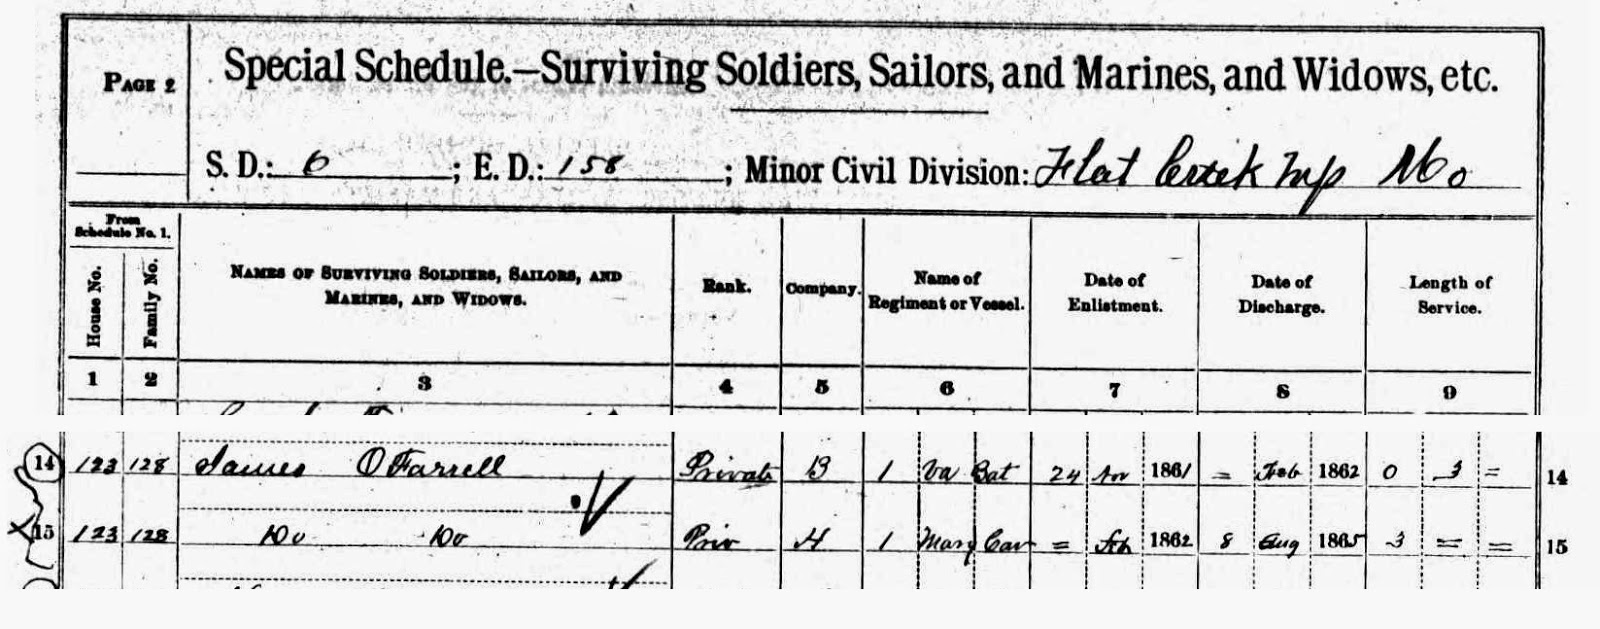 PAGE 2
Special Schedule.—Surviving Soldiers, Sailors, and Marines, and Widows, etc.
S. D.: 6 ; E. D.: 158 ; Minor Civil Division: Flat Creek Twp Mo
From Schedule No. 1.
House No.
Family No.
NAMES OF SURVIVING SOLDIERS, SAILORS, AND
MARINES, AND WIDOWS.
Rank.
Company.
Name of
Regiment or Vessel.
Date of
Enlistment.
Date of
Discharge.
Length of
Service.
1 2 3 4 5 6 7 8 9
14 123 128 James O Farrell Private B 1 Va Bat 24 Nov 1861 = Feb 1862 0 3 = 14
15 123 128 Do Do Priv H 1 Mary Cav = Feb 1862 8 Aug 1865 3 = = 15